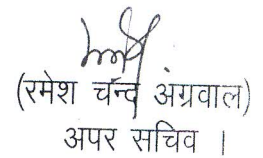 (रमेश चन्द अग्रवाल)
अपर सचिव ।